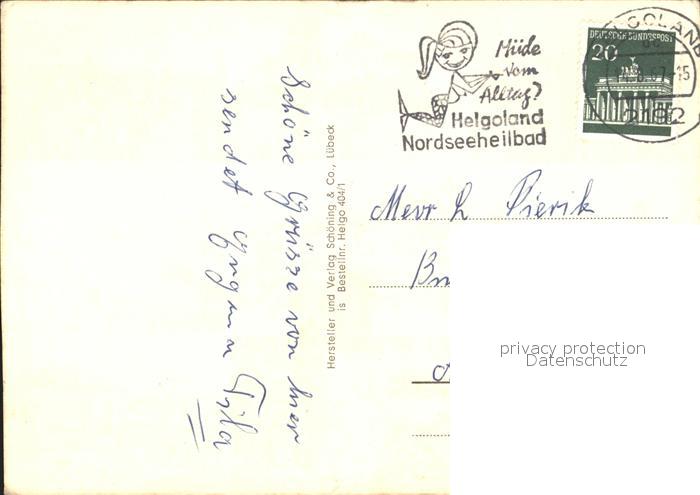 Schöne Grüsse von hier
sendet
Hersteller und Verlag Schöning & Co., Lübeck
is Bestellnr. Helgo 404/1
Müde
vom
Alltag?
Helgoland
Nordseeheilbad
DEUTSCHE BUNDESPOST
20
HELGOLAND
2192
Mevr L Pierik
privacy protection
Datenschutz